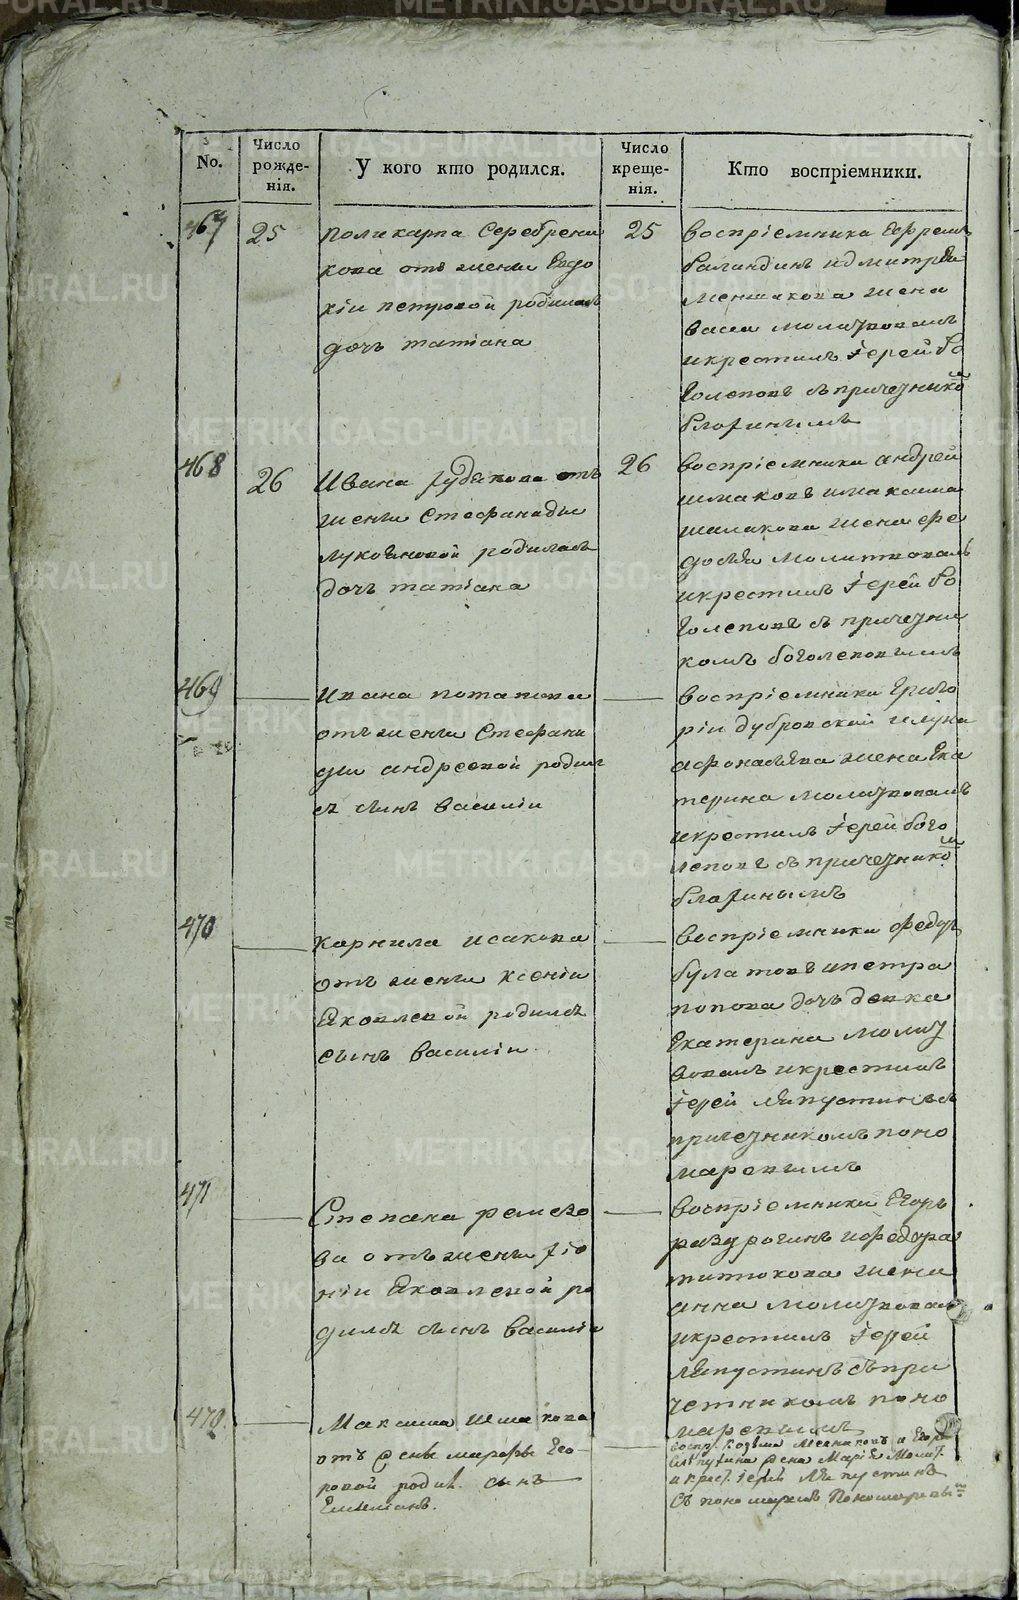 No.
Число рожде-нія.
У кого кто родился.
Число креще-нія.
Кто воспріемники.
467
25
поликарпа Серебрени
кова отъ жены Евдо
кіи петровой родилась
дочь татіана
25
воспріемники Ефремъ
баландинъ идмитрея
меншикова жена
васса молитвовалъ
икрестилъ Іерей бо
голеповъ съ причетнико
468
26
Ивана рудакова отъ
жены Стефаниды
лукояновой родилась
дочь татіана
26
воспріемники андрей
шмаковъ имаксима
шмакова жена фе
досья молитвовалъ
икрестилъ Іерей бо
голеповъ съ причетни
комъ боголеповымъ
469
Ивана потапова
отъ жены Стефани
ды андреевой родил
ся сынъ василіи
воспріемники Григо
ріи дубровской
афонасьева жена Ека
терина молитвовалъ
икрестилъ Іерей бого
леповъ съ причетнико
470
карнила исакова
отъ жены ксеніи
Яковлевой родился
сынъ василіи
воспріемники Федоръ
булатовъ ипетра
попова дочь девка
Екатерина молит
вовалъ икрестилъ
Іерей ляпустинъ съ
причетникомъ поно
маревымъ
471
Степана ремезо
ва отъ жены
Яковлевой ро
дился сынъ василіи
воспріемники Егоръ
ифедора
титкова жена
анна молитвовалъ
икрестилъ Іерей
ляпустинъ съ при
четникомъ поно
маревымъ
470
Максима Шмакова
отъ жены марфы Его
ровой родил. сынъ
воспр. Козьма и Его
жена Марія Молит.
и крест. Іерей Ляпустинъ
Съ пономаремъ Пономаревы